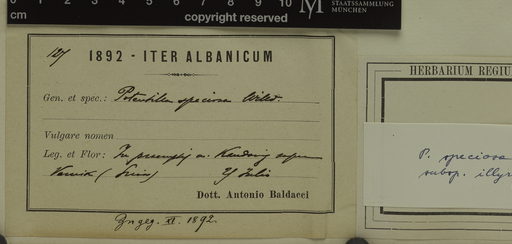 0 1 2 3 4 5 6 7 8 9 10
cm
copyright reserved
M STAATSSAMMLUNG
MÜNCHEN
127
1892 - ITER ALBANICUM
Gen. et spec.: Potentilla speciosa Willd.
Vulgare nomen
Leg. et Flor: In
Julio
Dott. Antonio Baldacci
XI. 1892.
HERBARIUM REGIU
P. speciosa
subsp. illyr